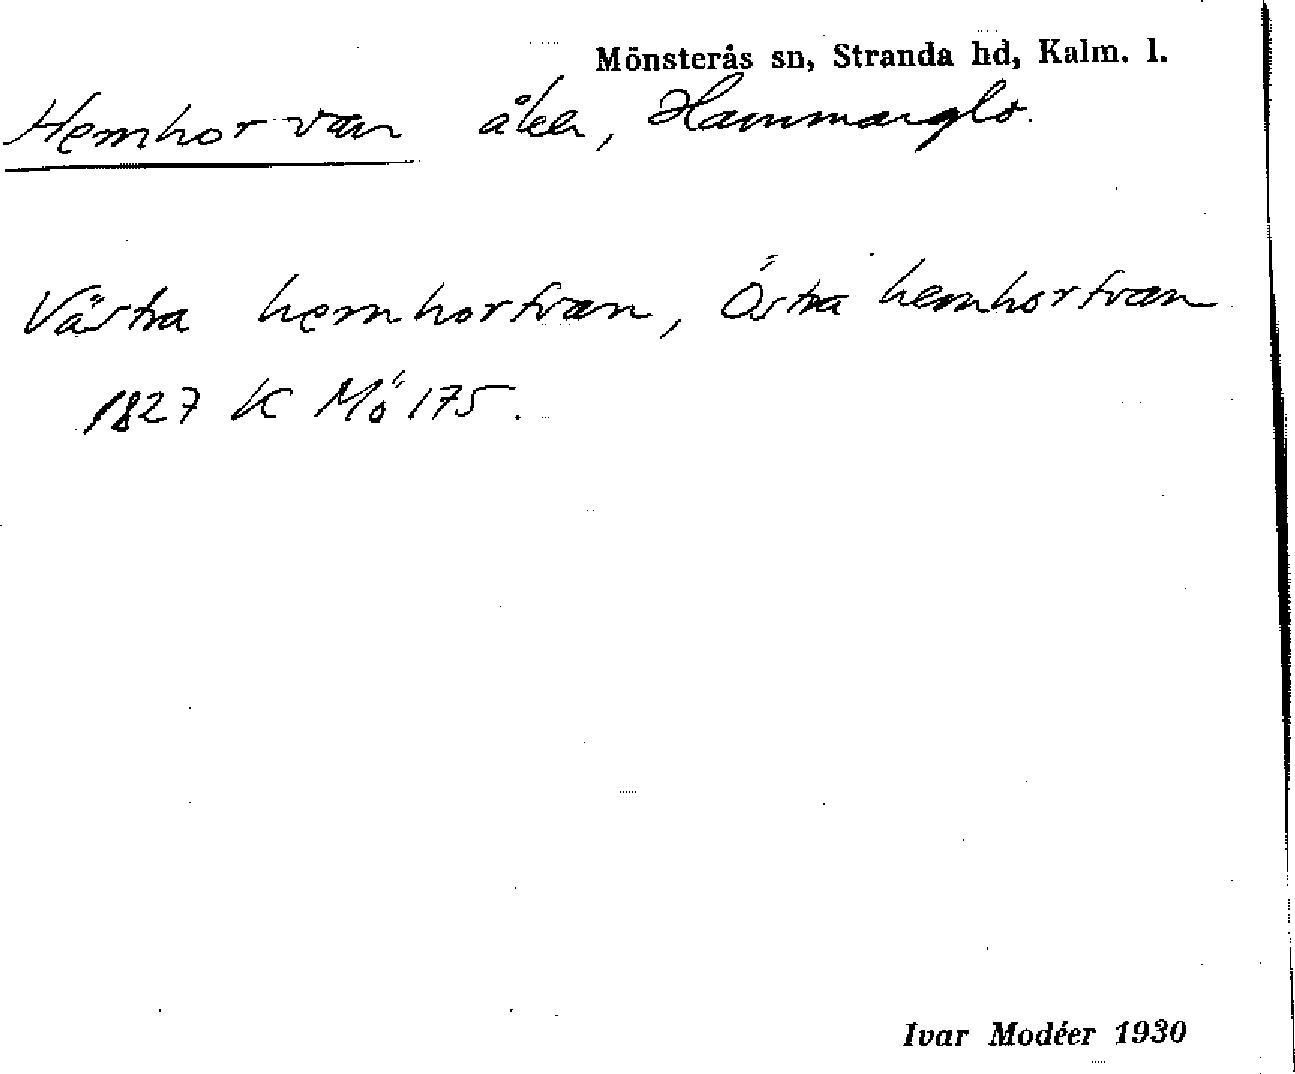 Mönsterås sn, Stranda hd, Kalm. l.
Hemhorvan åker, Hammarglo.
Västra hemhorfvan, Östra hemhorfvan
1827 K Mö 175.
Ivar Modéer 1930